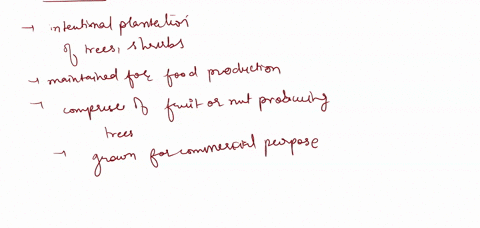 → intentional plantation
of trees, shrubs
→ maintained for food production
→ comprise of fruit or nut producing
trees
→ grown for commercial purpose